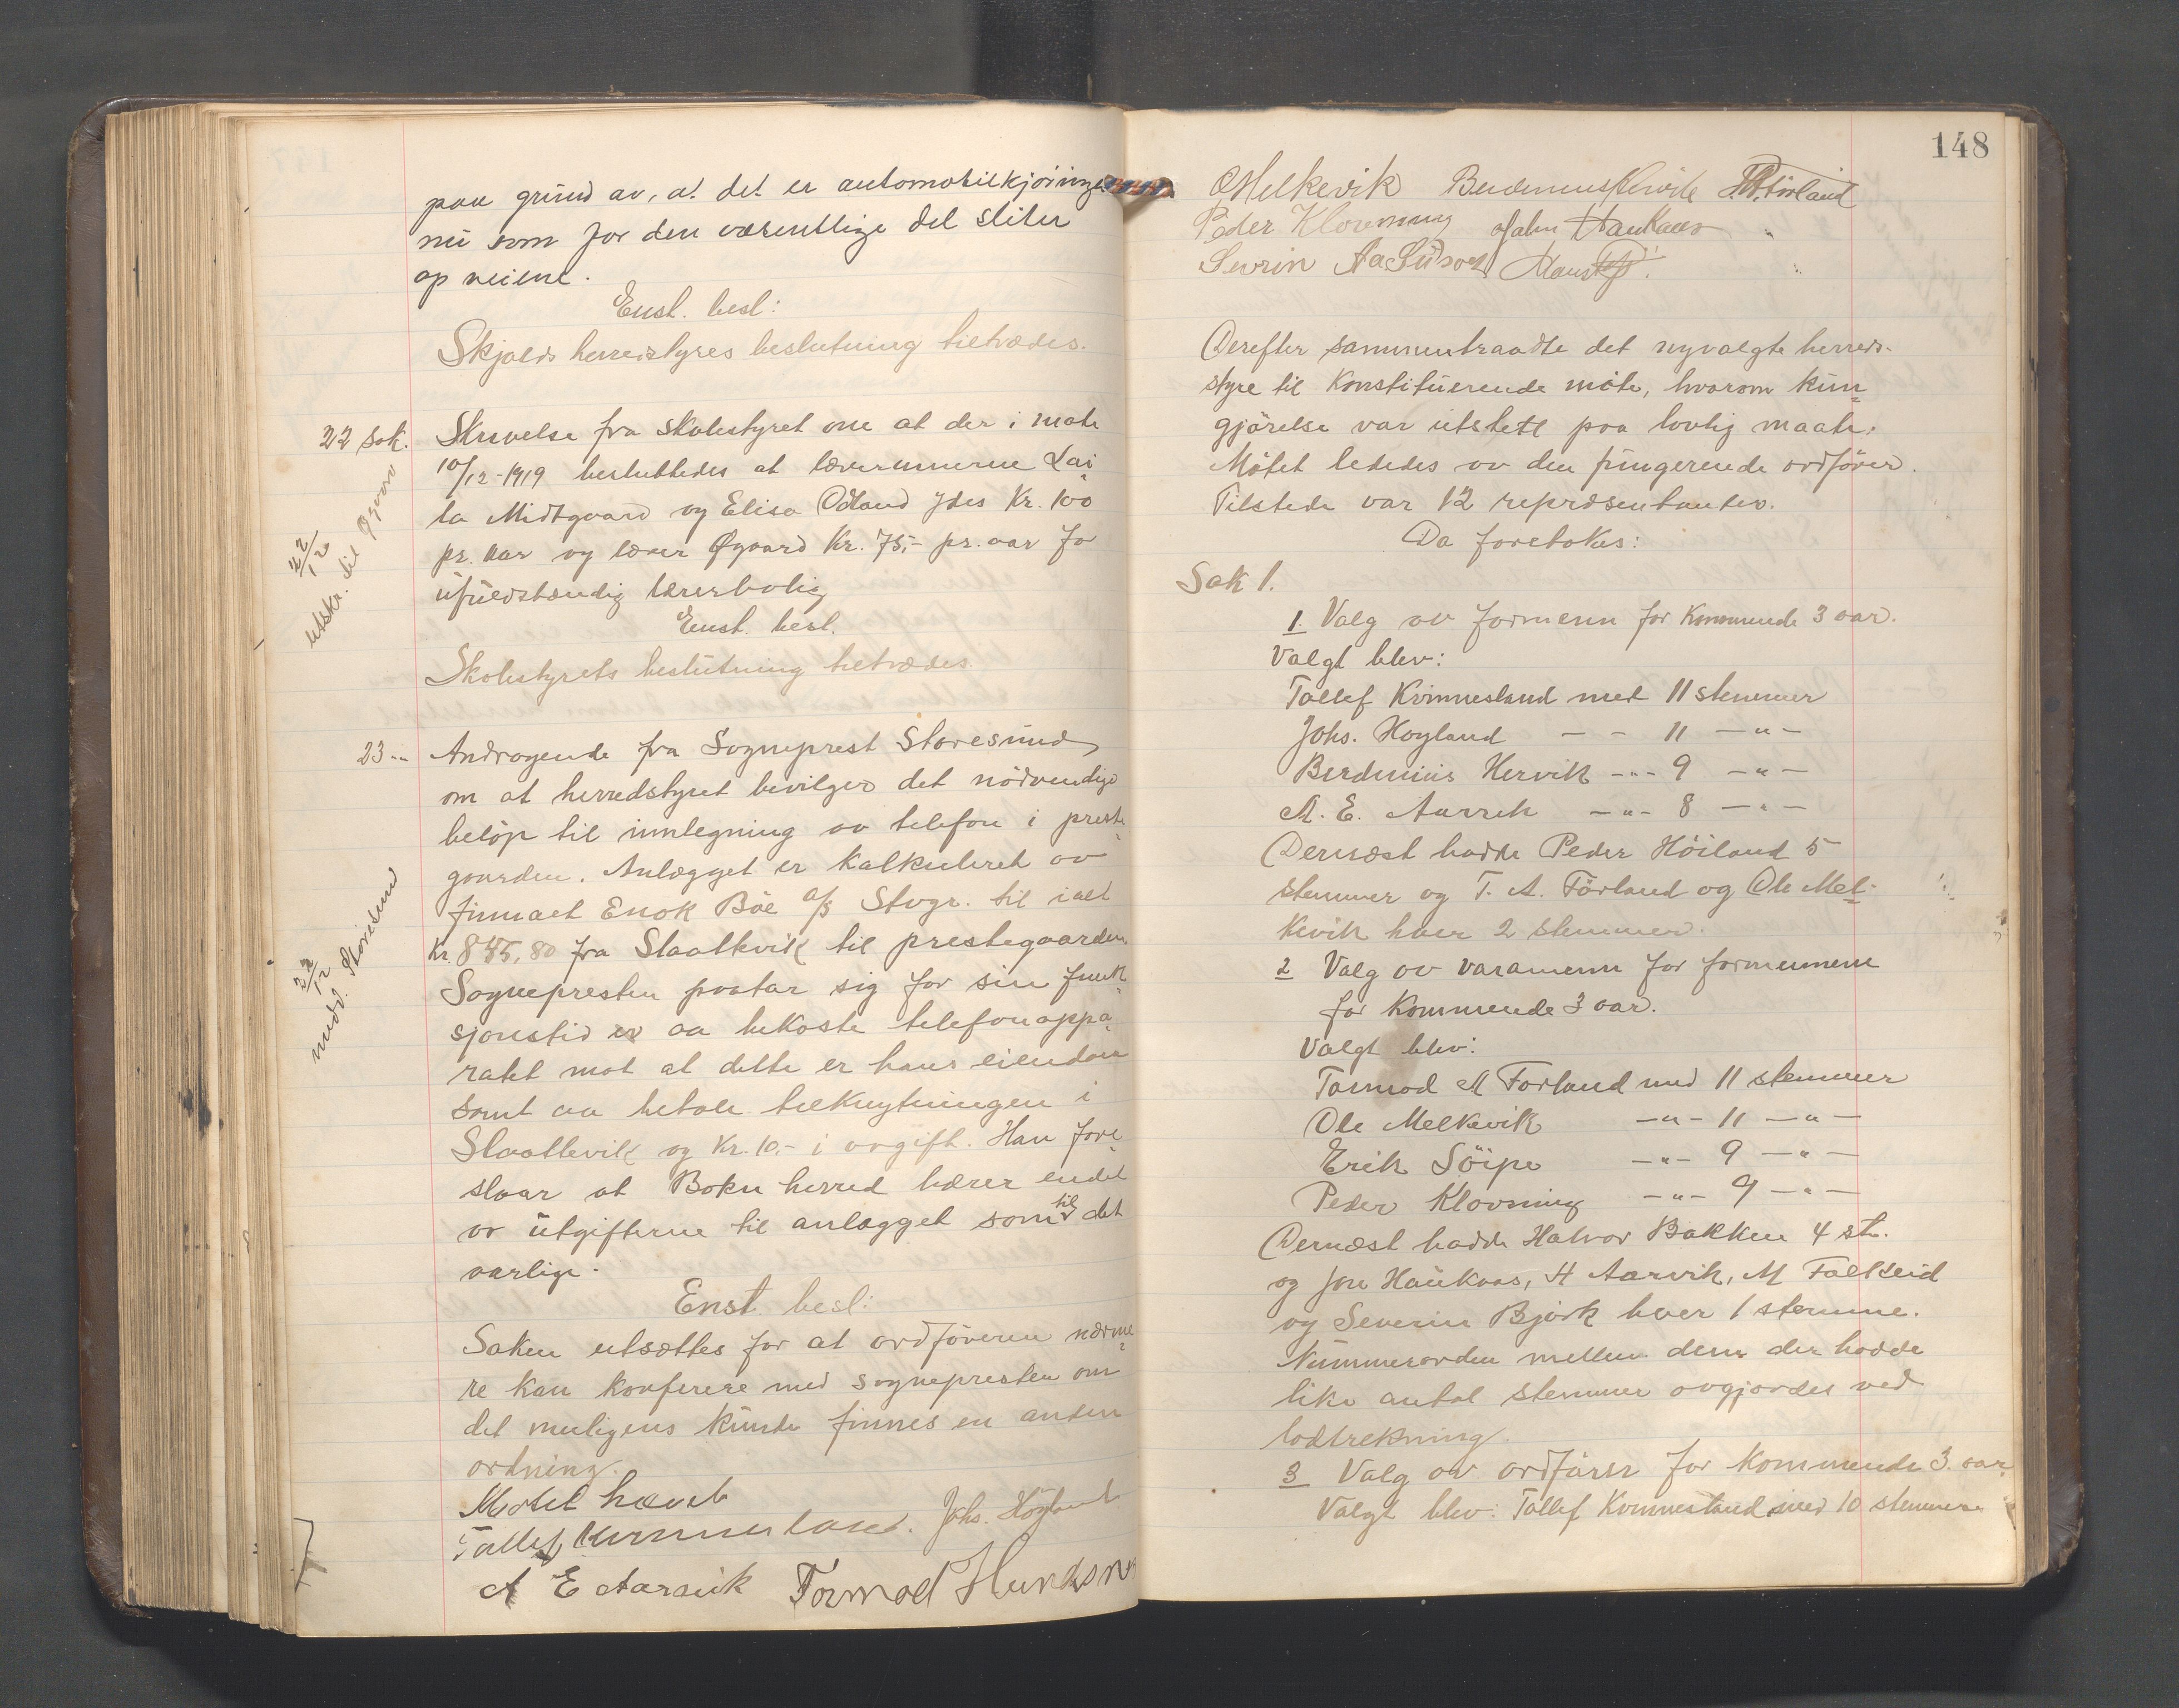 paa grund av, at det er automobilkjøringen
nu som for den væsentlige del sliter
op veiene.
Enst. besl:
Skjolds herredstyres beslutning tiltrædes.
22 sak. Skrivelse fra skolestyret om at der i møte
10/12-1919 besluttedes at lærerinnerne Lai
la Midtgaard og Elisa Odland ydes Kr. 100
pr. aar og lærer Øgaard Kr. 75,- pr. aar for
ufuldstændig lærerbolig
22/12
utskr. til Øgaard
Enst. besl.
Skolestyrets beslutning tiltrædes.
23 -"- Andragende fra Sogneprest Storesund
om at herredstyret bevilger det nödvendige
belöp til innlegning av telefon i preste
gaarden. Anlægget er kalkuleret av
firmaet Enok Böe A/S Stvgr. til ialt
Kr. 845,80 fra Slaattevik til prestegaarden
22/12
medd. Storesund
Sognepresten paatar sig for sin funk
sjonstid er aa bekoste telefonappa
ratet mot at dette er hans eiendom
samt aa betale tilknytningen i
Slaattevik og Kr. 10,- i avgift. Han fore
slaar at Bokn herred bærer endel
av utgifterne til anlægget som til det
varlige.
Enst. besl:
Saken utsættes for at ordföreren nærme
re kan konferere med sognepresten om
det muligens kunde finnes en anden
ordning.
Motet hævet
Tallef Kvinnesland. Johs. Höyland
A E Aarvik Tormod Hundsnes
148
O Melkevik Berdinius Hervik T. A. Förland
Peder Klovning John Haukaas
Sevrin
Derefter sammentraadte det nyvalgte herreds-
styre til konstituerende möte, hvorom kun
gjörelse var utstett paa lovlig maate.
Mötet lededes av den fungerende ordförer.
Tilstede var 12 repræsentanter.
Da foretokes:
Sak 1.
1. Valg av formenn for kommende 3 aar.
Valgt blev:
Tallef Kvinnesland med 11 stemmer
Johs. Hoyland - - 11 -"-
Berdinius Hervik -"- 9 -"-
A. E. Aarvik -"- 8 -"-
Dernæst hadde Peder Höiland 5
stemmer og T. A. Förland og Ole Mel-
kevik hver 2 stemmer.
2 Valg av varamenn for formennene
for kommende 3 aar.
Valgt blev:
Tormod A Forland med 11 stemmer
Ole Melkevik -"- 11 -"-
Erik Söipe -"- 9 -"-
Peder Klovning -"- 9 -"-
Dernæst hadde Halvor Bakken 4 st.
og Jon Haukaas, H Aarvik, M Falkeid
og Severin Björk hver 1 stemme.
Nummerorden mellem dem der hadde
like antal stemmer avgjordes ved
lodtrekning.
3 Valg av ordfører for kommende 3 aar
Valgt blev: Tallef Kvinnesland med 10 stemmer.